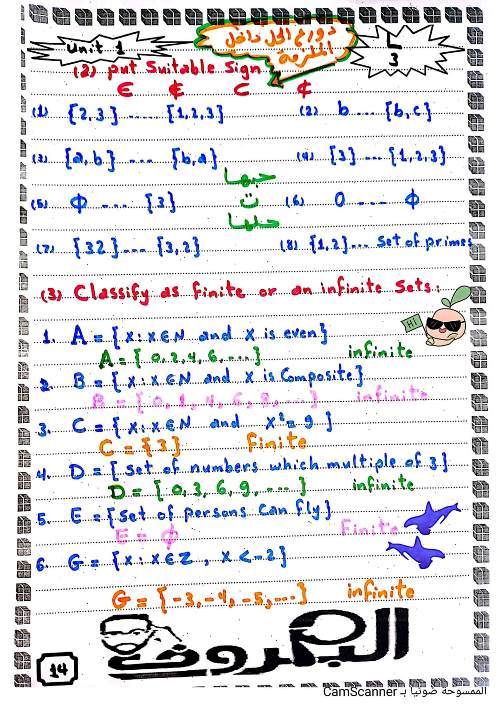 Unit 1
دورع الحل داخل
المطرية
L
3
(2) put Suitable Sign
∈ ∉ ⊂ ⊄
(1) {2,3} ..... {1,2,3}
(2) b .... {b,c}
(3) {a,b} ..... {b,a}
(4) {3} .... {1,2,3}
حبها
(5) Φ .... {3}
ت
(6) 0 .... Φ
حلها
(7) {32} .... {3,2}
(8) {1,2} ... Set of primes
(3) Classify as finite or an infinite Sets:
HI
1. A = {x : x ∈ N and x is even}
A = {0,2,4,6,....} infinite
2. B = {x : x ∈ N and x is Composite}
infinite
3. C = {x : x ∈ N and x² = 9}
C = {3} Finite
4. D = {set of numbers which multiple of 3}
D = {0,3,6,9,....} infinite
5. E = {set of persons Can fly}
E = Φ Finite
6. G = {x : x ∈ Z, x < -2}
G = {-3,-4,-5,....} infinite
14
الممسوحة ضوئيا بـ CamScanner